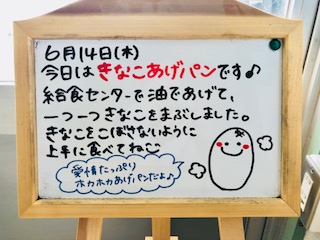 6月14日(木)
今日はきなこあげパンです♪
給食センターで油であげて、
一つ一つきなこをまぶしました。
きなこをこぼさないように
上手に食べてね
愛情たっぷり
ホカホカあげパンだよ♪